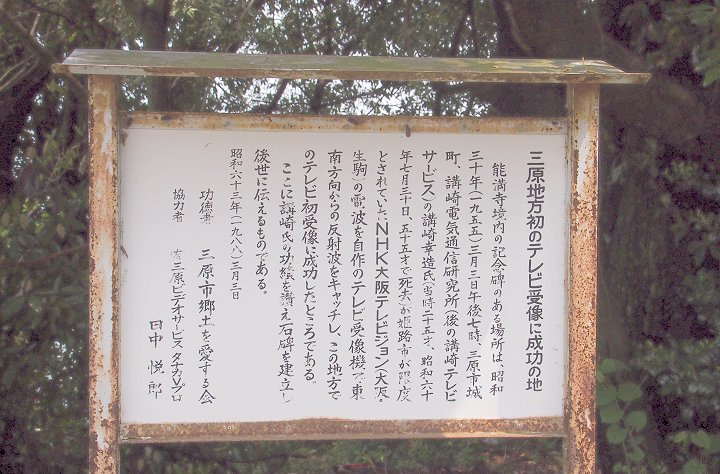 三原地方初のテレビ受像に成功の地
能満寺境内の記念碑のある場所は、昭和
三十年(一九五五)三月三日午後七時、三原市城
町、講崎電気通信研究所(後の講崎テレビ
サービス)の講崎幸造氏(当時二十五才、昭和六十
年七月三十日、五十五才で死去)が姫路市が限度
とされていたNHK大阪テレビジョン(大阪・
生駒)の電波を自作のテレビ受像機で東
南方向からの反射波をキャッチし、この地方で
のテレビ初受像に成功したところである。
ここに講崎氏の功績を讃え石碑を建立し
後世に伝えるものである。
昭和六十三年(一九八八)三月三日
功徳者 三原市郷土を愛する会
協力者 三原ビデオサービスタナカVプロ
田中悦郎